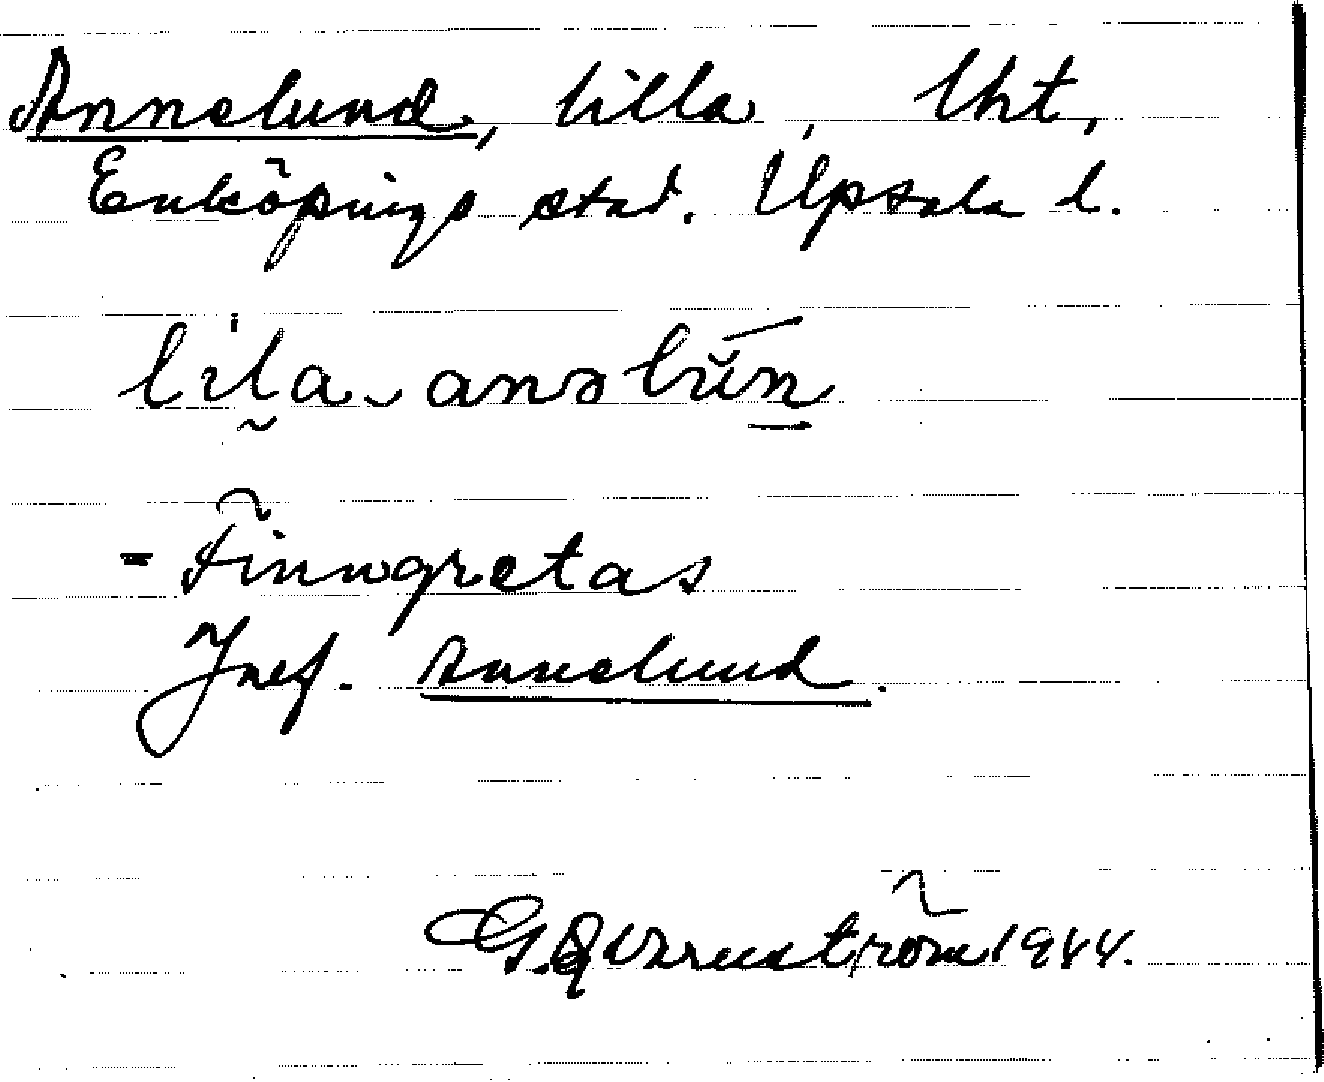 Annelund, lilla, lht,
Enköpings stad. Upsala l.
lila anəlun
= Finngretas
Jmf. Annelund.
G. Qvarnström 1944.